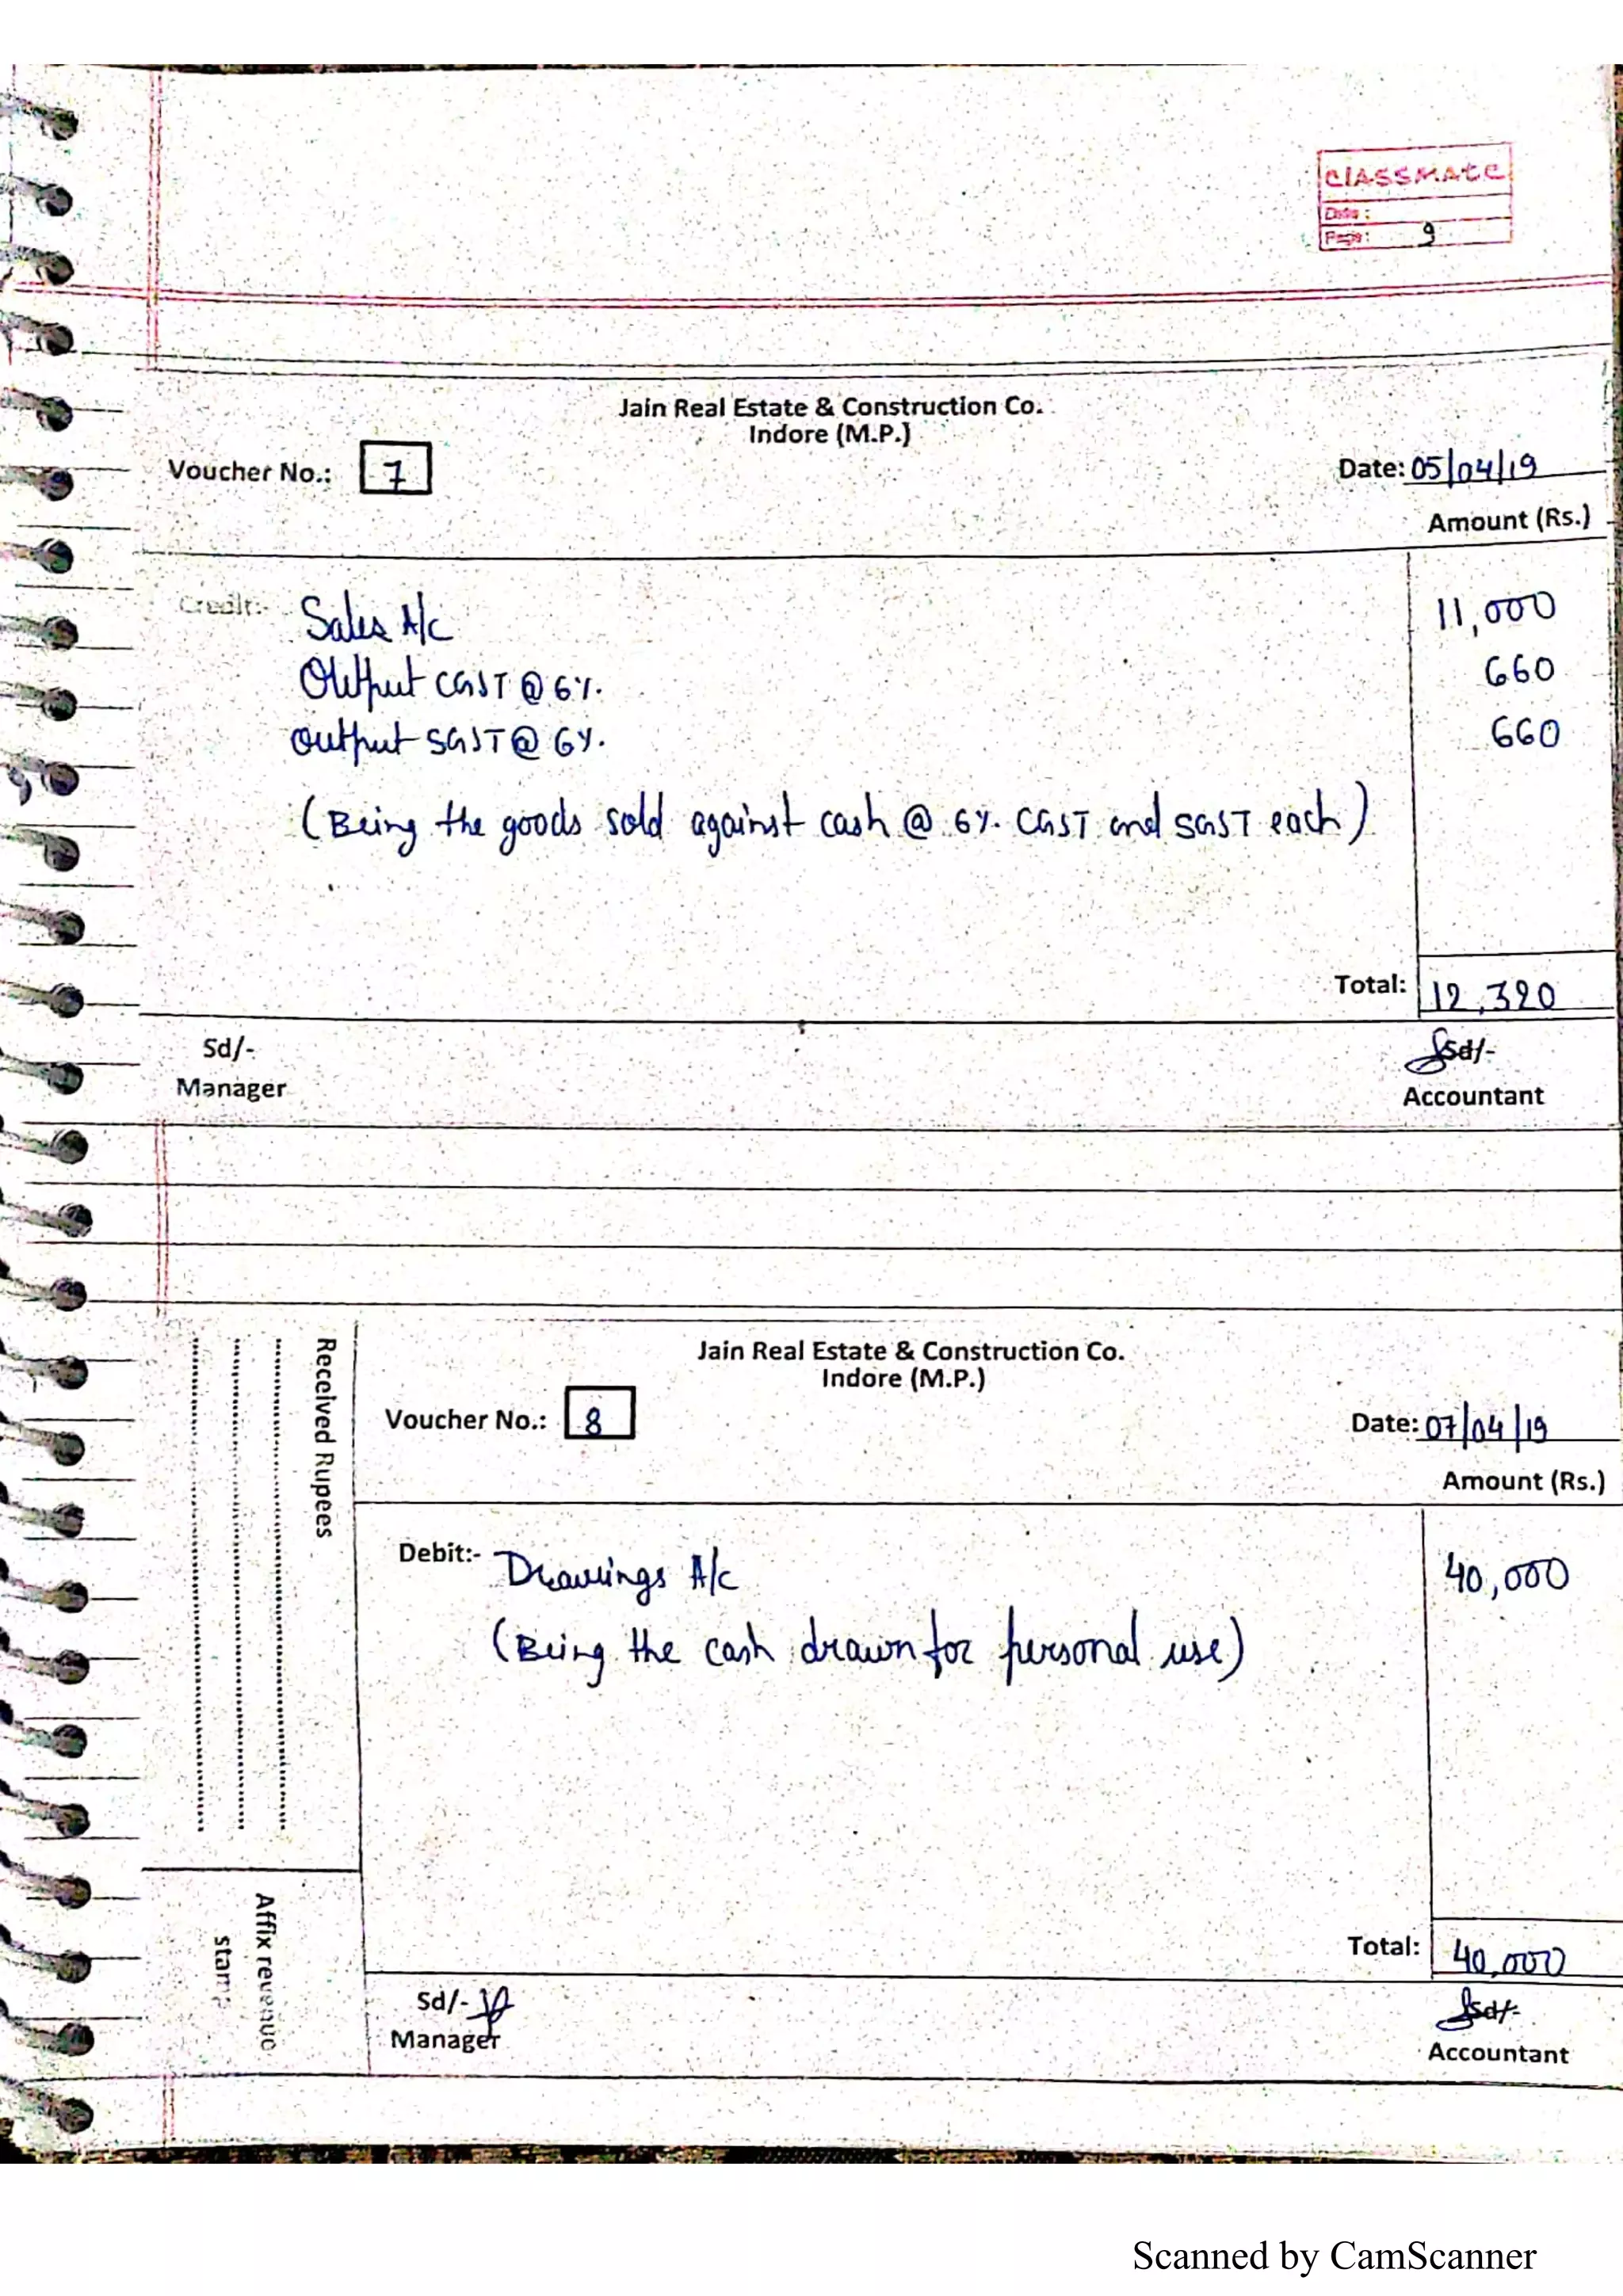 classmate
Date :
Page : 9
Jain Real Estate & Construction Co.
Indore (M.P.)
Voucher No.: 7
Date: 05/04/19
Amount (Rs.)
Credit:- Sales A/c 11,000
Output CGST @ 6% 660
Output SGST @ 6%. 660
(Being the goods sold against cash @ 6%. CGST and SGST each)
Total: 12,320
Sd/- Sd/-
Manager Accountant
Jain Real Estate & Construction Co.
Indore (M.P.)
Voucher No.: 8
Date: 07/04/19
Amount (Rs.)
Received Rupees
Debit:- Drawings A/c 40,000
(Being the cash drawn for personal use)
Affix revenue
stamp
Total: 40,000
Sd/- Sd/-
Manager Accountant
Scanned by CamScanner